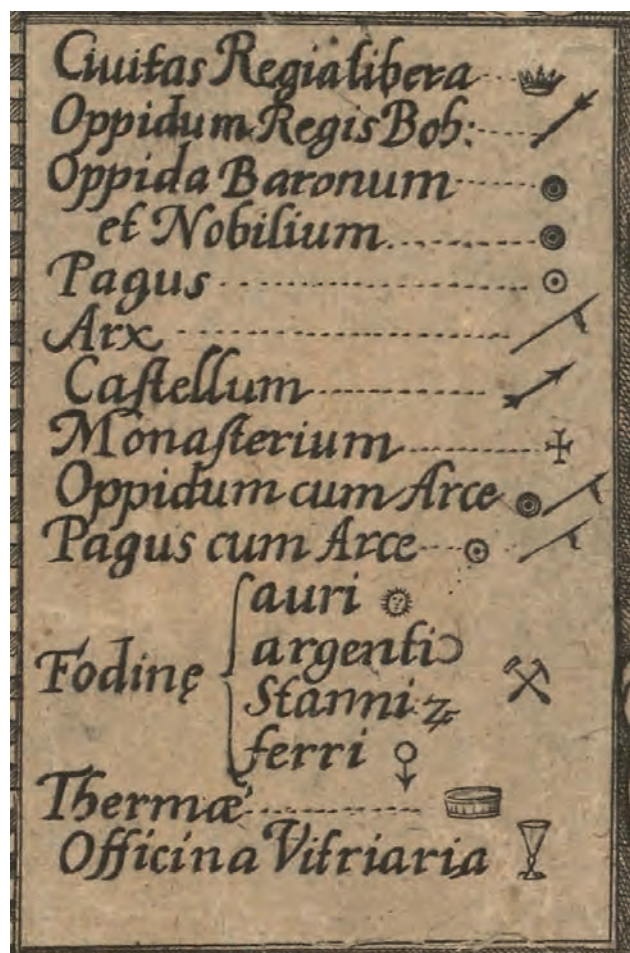 Ciuitas Regia libera
Oppidum Regis Boh:
Oppida Baronum
et Nobilium
Pagus
Arx
Caſtellum
Monaſterium
Oppidum cum Arce
Pagus cum Arce
Fodinę
auri
argenti
Stanni
ferri
Thermæ
Officina Vitriaria